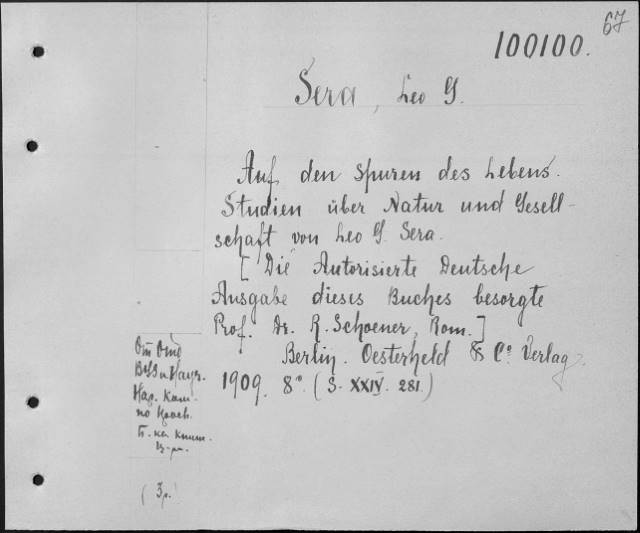 67
100100.
Sera, Leo G.
Auf den Spuren des Lebens.
Studien über Natur und Gesell-
schaft von Leo G. Sera.
[Die Autorisierte Deutsche
Ausgabe dieses Buches besorgte
Prof. Dr. R. Schoener, Rom.]
Berlin. Oesterheld & Cº. Verlag.
1909. 8º. (S. XXIV. 281.)
Нар. Ком.
по
(3р.)